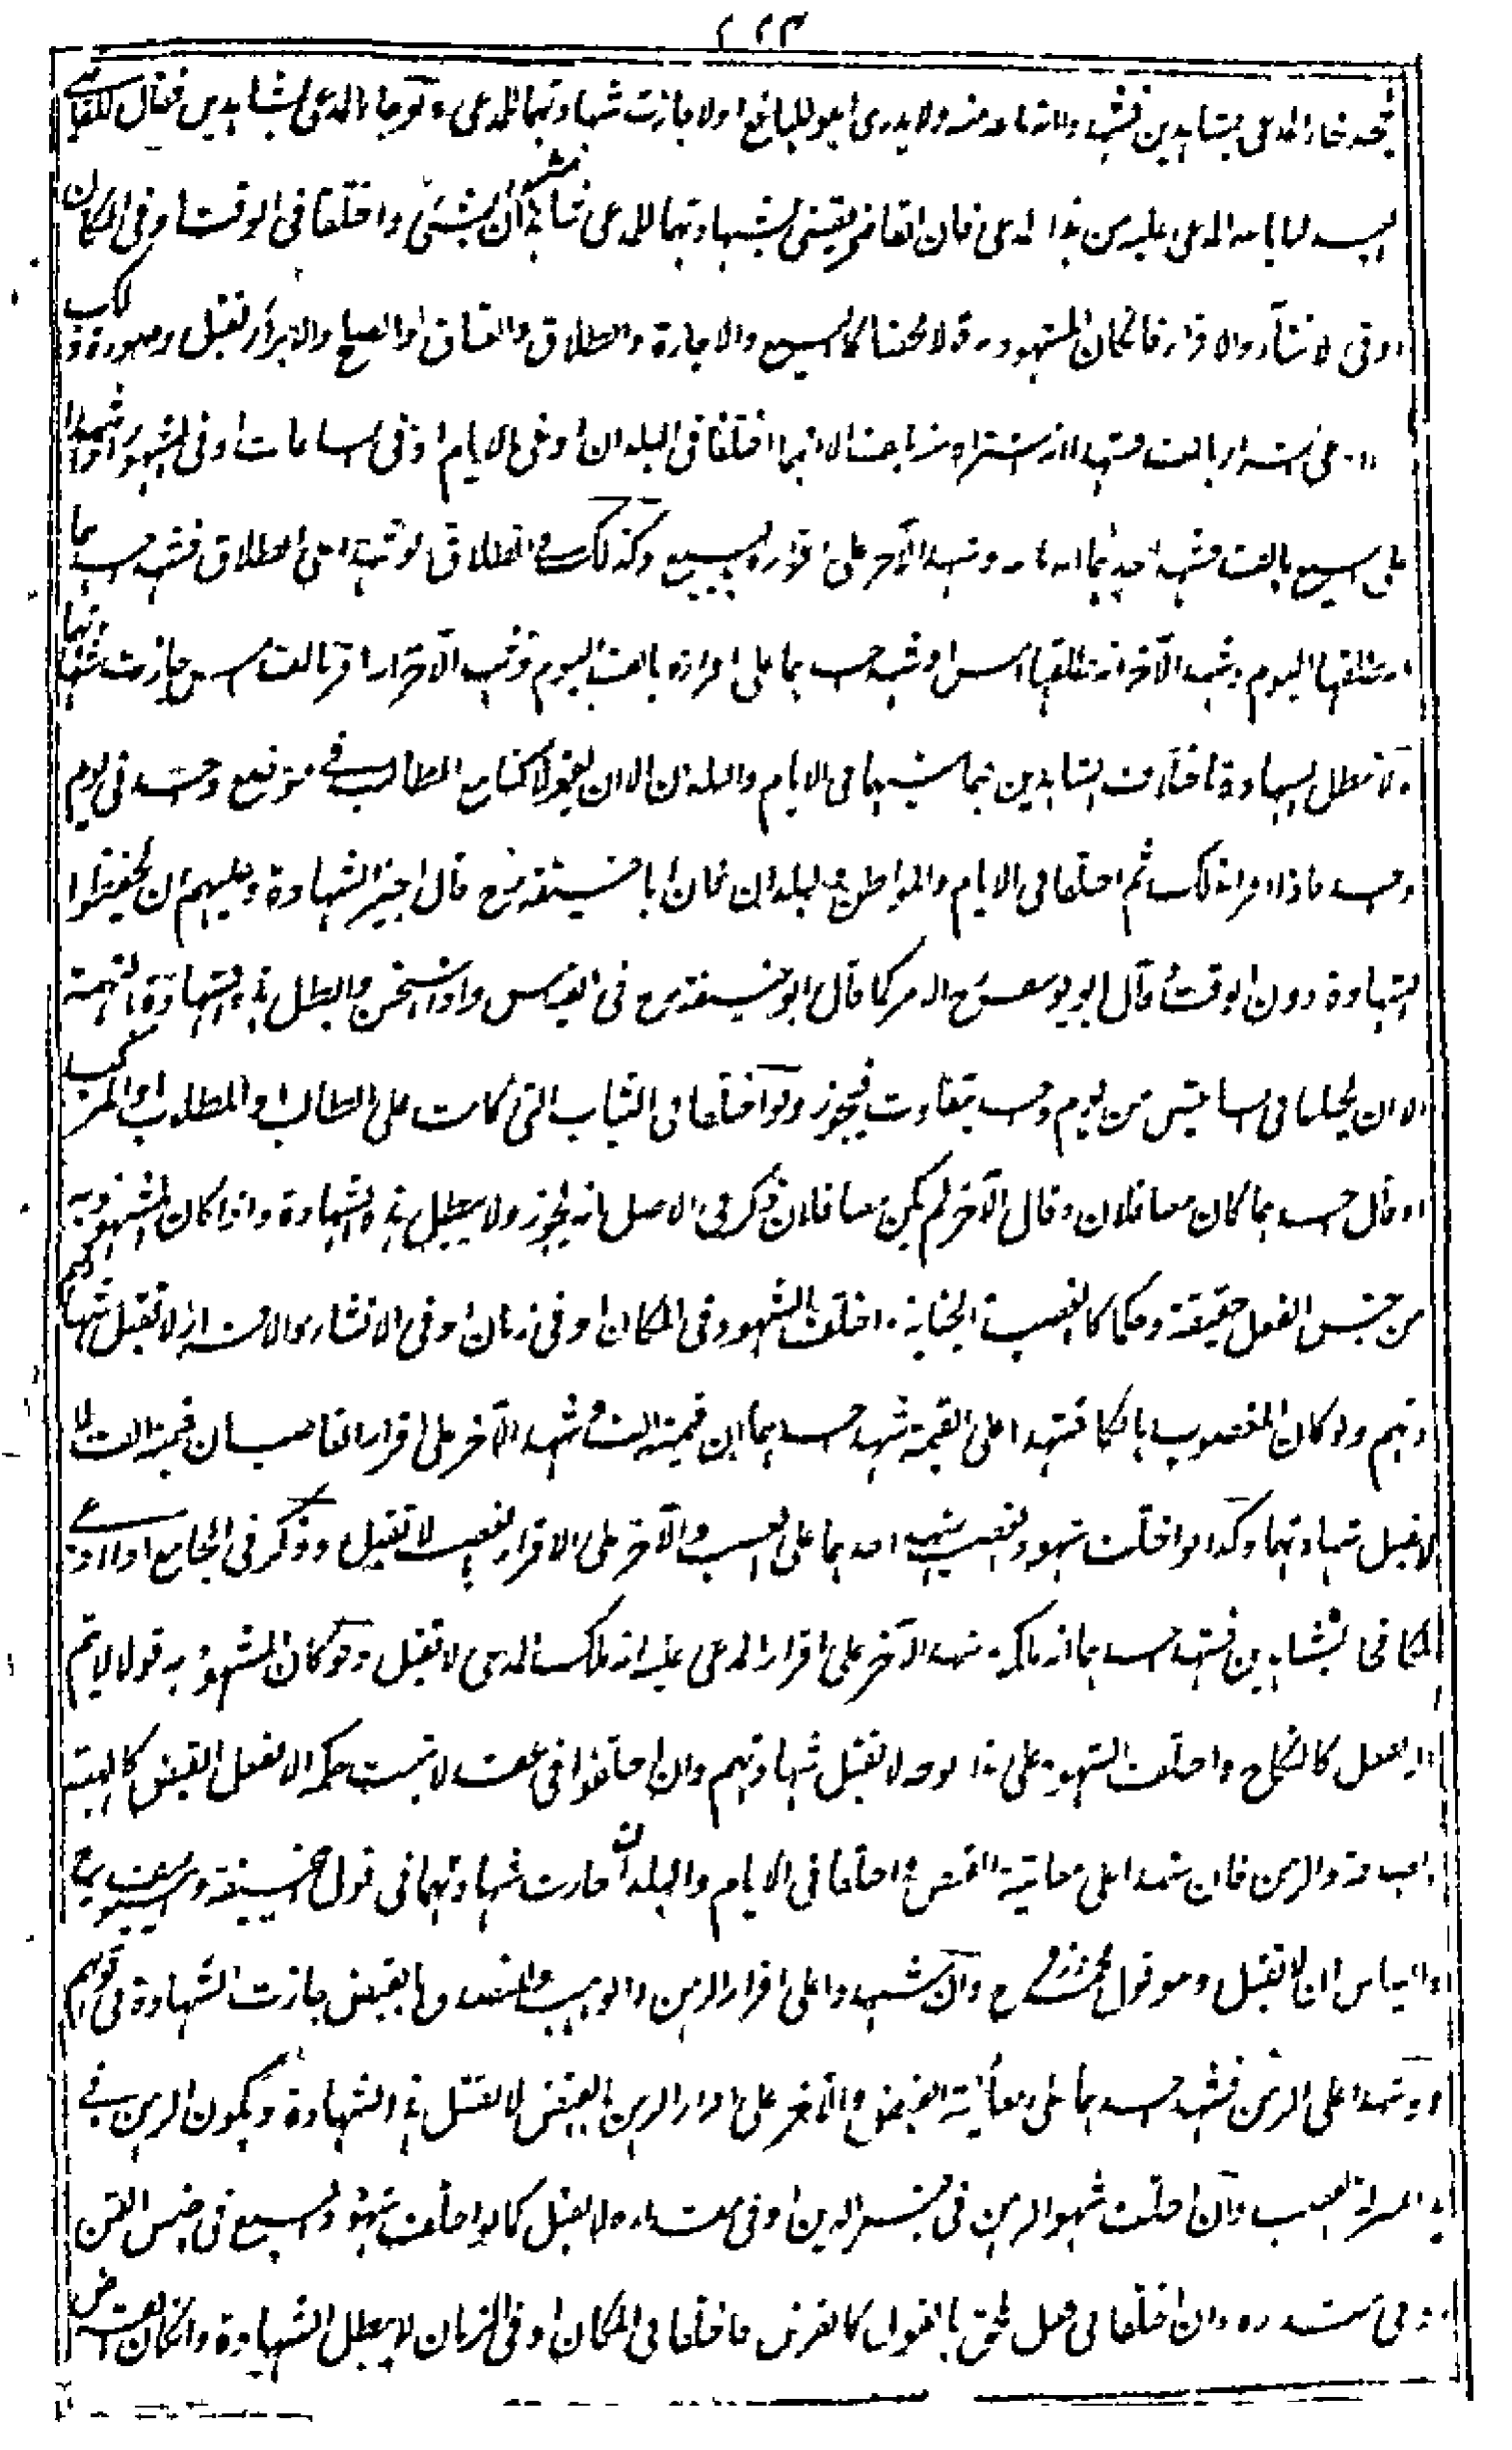 ٢٢٣
المدعى بشاهدين فشهدا انه باعه منه ولا يدرى اهو للبائع او لا جازت شهادتهما للمدعى ولو جاء المدعى بشاهدين فقال للقاضى
المدعى عليه من هذا المدعى فان القاضى يقضى بشهادتهما للمدعى شاهدان شهدا بشئ واختلفا فى الوقت او فى المكان
او فى الانشاء والاقرار فان كان المشهود به قولا محضا كالبيع والاجارة والطلاق والعتاق والصلح والابراء تقبل وصورة ذلك
بالف فشهدا انه اشتراه منه بالف الا انهما اختلفا فى البلدان او فى الايام او فى الساعات او فى الشهور او شهدا
على البيع بالف فشهد احدهما انه باعه وشهد الآخر على اقراره بالبيع وكذلك فى الطلاق لو شهدا على الطلاق فشهد احدهما
انه طلقها اليوم وشهد الآخر انه طلقها امس او شهد احدهما على اقراره بالف اليوم وشهد الآخر انه اقر بالف امس جازت شهادتهما
ولا تبطل الشهادة باختلاف الشاهدين فيما بينهما فى الايام والبلدان الا ان يقولا كنا مع الطالب فى موضع واحد فى يوم
واحد فاذا اقرا بذلك ثم اختلفا فى الايام والمواطن والبلدان فان ابا حنيفة رح قال اجيز الشهادة وعليهم ان يحفظوا
الشهادة دون الوقت وقال ابو يوسف رح الامر كما قال ابو حنيفة رح فى القياس وانا استحسن وابطل هذه الشهادة بالتهمة
الا ان يختلفا فى الساعتين من يوم واحد بتفاوت فيجوز ولو اختلفا فى الثياب التى كانت على الطالب او المطلوب او المركب
او قال احدهما كان معنا فلان وقال الآخر لم يكن معنا فلان ذكر فى الاصل انه يجوز ولا يبطل هذه الشهادة واذا كان المشهود به
من جنس الفعل حقيقة وحكما كالغصب والجناية واختلف الشهود فى المكان او فى الزمان او فى الانشاء والاقرار لا تقبل شهادتهم
ولو كان المغصوب هالكا فشهدا على القيمة شهد احدهما ان قيمته الف وشهد الآخر على اقرار الغاصب ان قيمته الف لا
تقبل شهادتهما وكذا لو اختلف شهود الغصب شهد احدهما على الغصب والآخر على الاقرار بالغصب لا تقبل وذكر فى الجامع
بشاهدين فشهد احدهما انه ملكه وشهد الآخر على اقرار المدعى عليه انه ملك المدعى لا تقبل ولو كان المشهود به قولا لا يتم
الا بفعل كالنكاح واختلف الشهود على هذا الوجه لا تقبل شهادتهم وان اختلفوا فى عقد لا يثبت حكمه الا بفعل القبض كالهبة
والصدقة والرهن فان شهدا على معاينة القبض واختلفا فى الايام والبلدان جازت شهادتهما فى قول ابى حنيفة وابى يوسف رح
والقياس ان لا تقبل وهو قول محمد وزفر رح وان شهدوا على اقرار الراهن والواهب والمتصدق بالقبض جازت الشهادة فى قولهم
ولو شهدا على الرهن فشهد احدهما على معاينة القبض والآخر على اقرار الراهن بالقبض لا تقبل هذه الشهادة ويكون الرهن فى
هذا بمنزلة الغصب وان اختلف شهود الرهن فى جنس الدين او فى مقداره لا يقبل كما لو اختلف شهود البيع فى جنس الثمن
او فى مقداره وان اختلفا فى فعل ملحق بالقول كالقرض فاختلفا فى المكان او فى الزمان لا يبطل الشهادة وان كان القرض